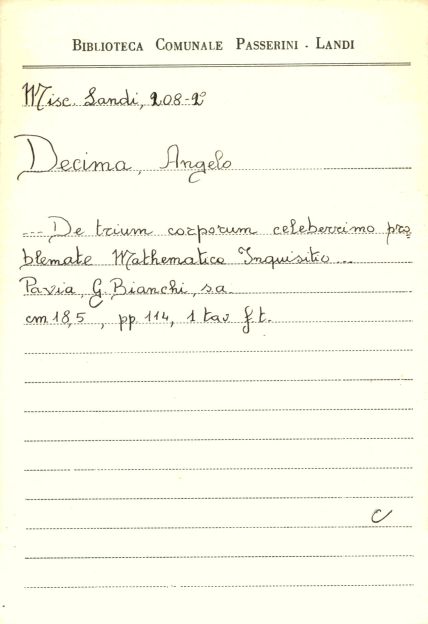 BIBLIOTECA COMUNALE PASSERINI - LANDI
Misc. Landi, 208-2°
Decima, Angelo
... De trium corporum celeberrimo pro=
blemate Mathematica Inquisitio ...
Pavia, G. Bianchi, s.a.
cm 18,5, pp. 114, 1 tav. f. t.
C